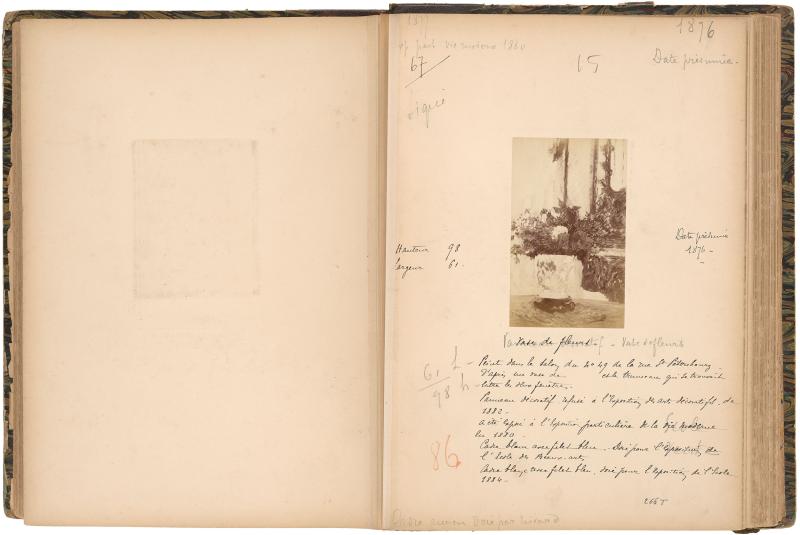 1877
part vie moderne 1880
67
signé
15
1876
Date présumée.
Hauteur 98
Largeur 61.
Date présumée
1876 -
Vase de fleurs - Vase de fleurs
61 L
98 h
Peint dans le salon du no 49 de la rue St Pétersbourg.
D'après un vase de et le trumeau qui se trouvait
entre les deux fenêtres.
Panneau décoratif refusé à l'Exposition des arts décoratifs de
1882 -
a été exposé à l'Exposition particulière de la Vie moderne
en 1880
Cadre blanc avec filet bleu. Doré pour l'Exposition de
l'Ecole des Beaux-arts
Cadre blanc avec filet bleu, doré pour l'exposition de l'Ecole
1884 -
86
266 T
Cadre doré par